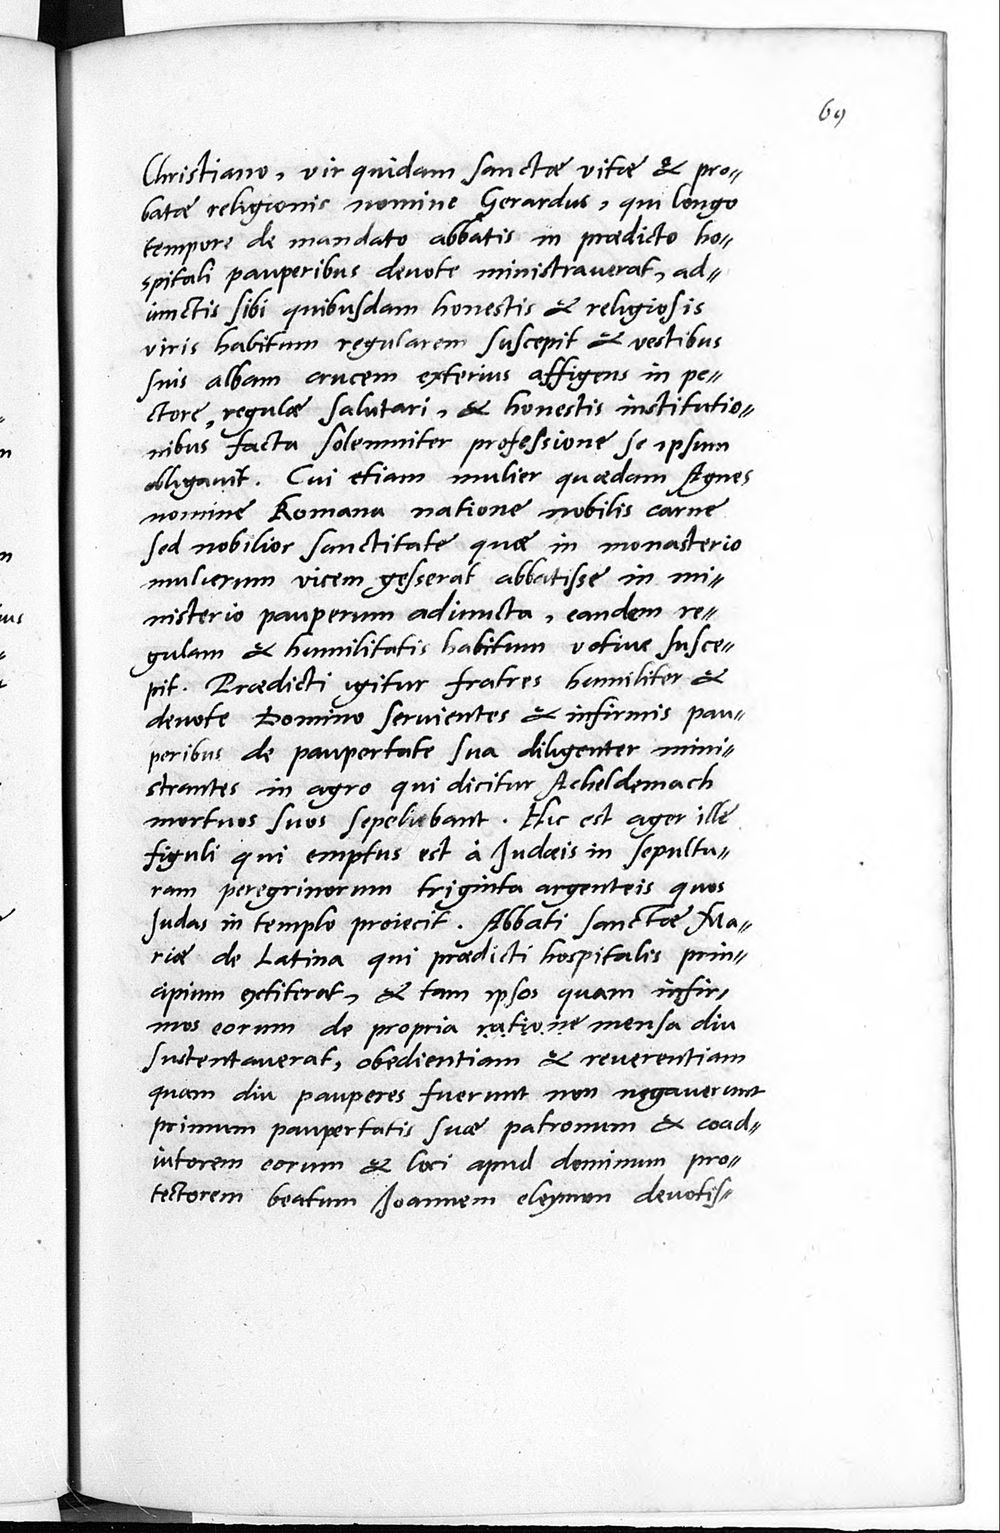 69
Christiano, vir quidam sanctæ vitæ & pro=
batæ religionis nomine Gerardus, qui longo
tempore de mandato abbatis in prædicto ho=
spitali pauperibus deuote ministrauerat, ad=
iunctis sibi quibusdam honestis & religiosis
viris habitum regularem suscepit & vestibus
suis albam crucem exterius affigens in pe=
ctore, regulæ salutari, & honestis institutio=
nibus facta solemniter professione se ipsum
obligauit. Cui etiam mulier quædam Agnes
nomine Romana natione nobilis carne
sed nobilior sanctitate quæ in monasterio
mulierum vicem gesserat abbatisse in mi=
nisterio pauperum adiuncta, eandem re=
gulam & humilitatis habitum votiue susce=
pit. Prædicti igitur fratres humiliter &
deuote Domino seruientes & infirmis pau=
peribus de paupertate sua diligenter mini=
strantes in agro qui dicitur Acheldemach
mortuos suos sepeliebant. Hic est ager ille
figuli qui emptus est à Judæis in sepultu=
ram peregrinorum triginta argenteis quos
Judas in templo proiecit. Abbati sanctæ Ma=
riæ de Latina qui prædicti hospitalis prin=
cipium extiterat, & tam ipsos quam infir=
mos eorum de propria ratione mensa diu
sustentauerat, obedientiam & reuerentiam
quam diu pauperes fuerunt non negauerunt
primum paupertatis suæ patronum & coad=
iutorem eorum & loci apud dominum pro=
tectorem beatum Joannem eleymon deuotis=